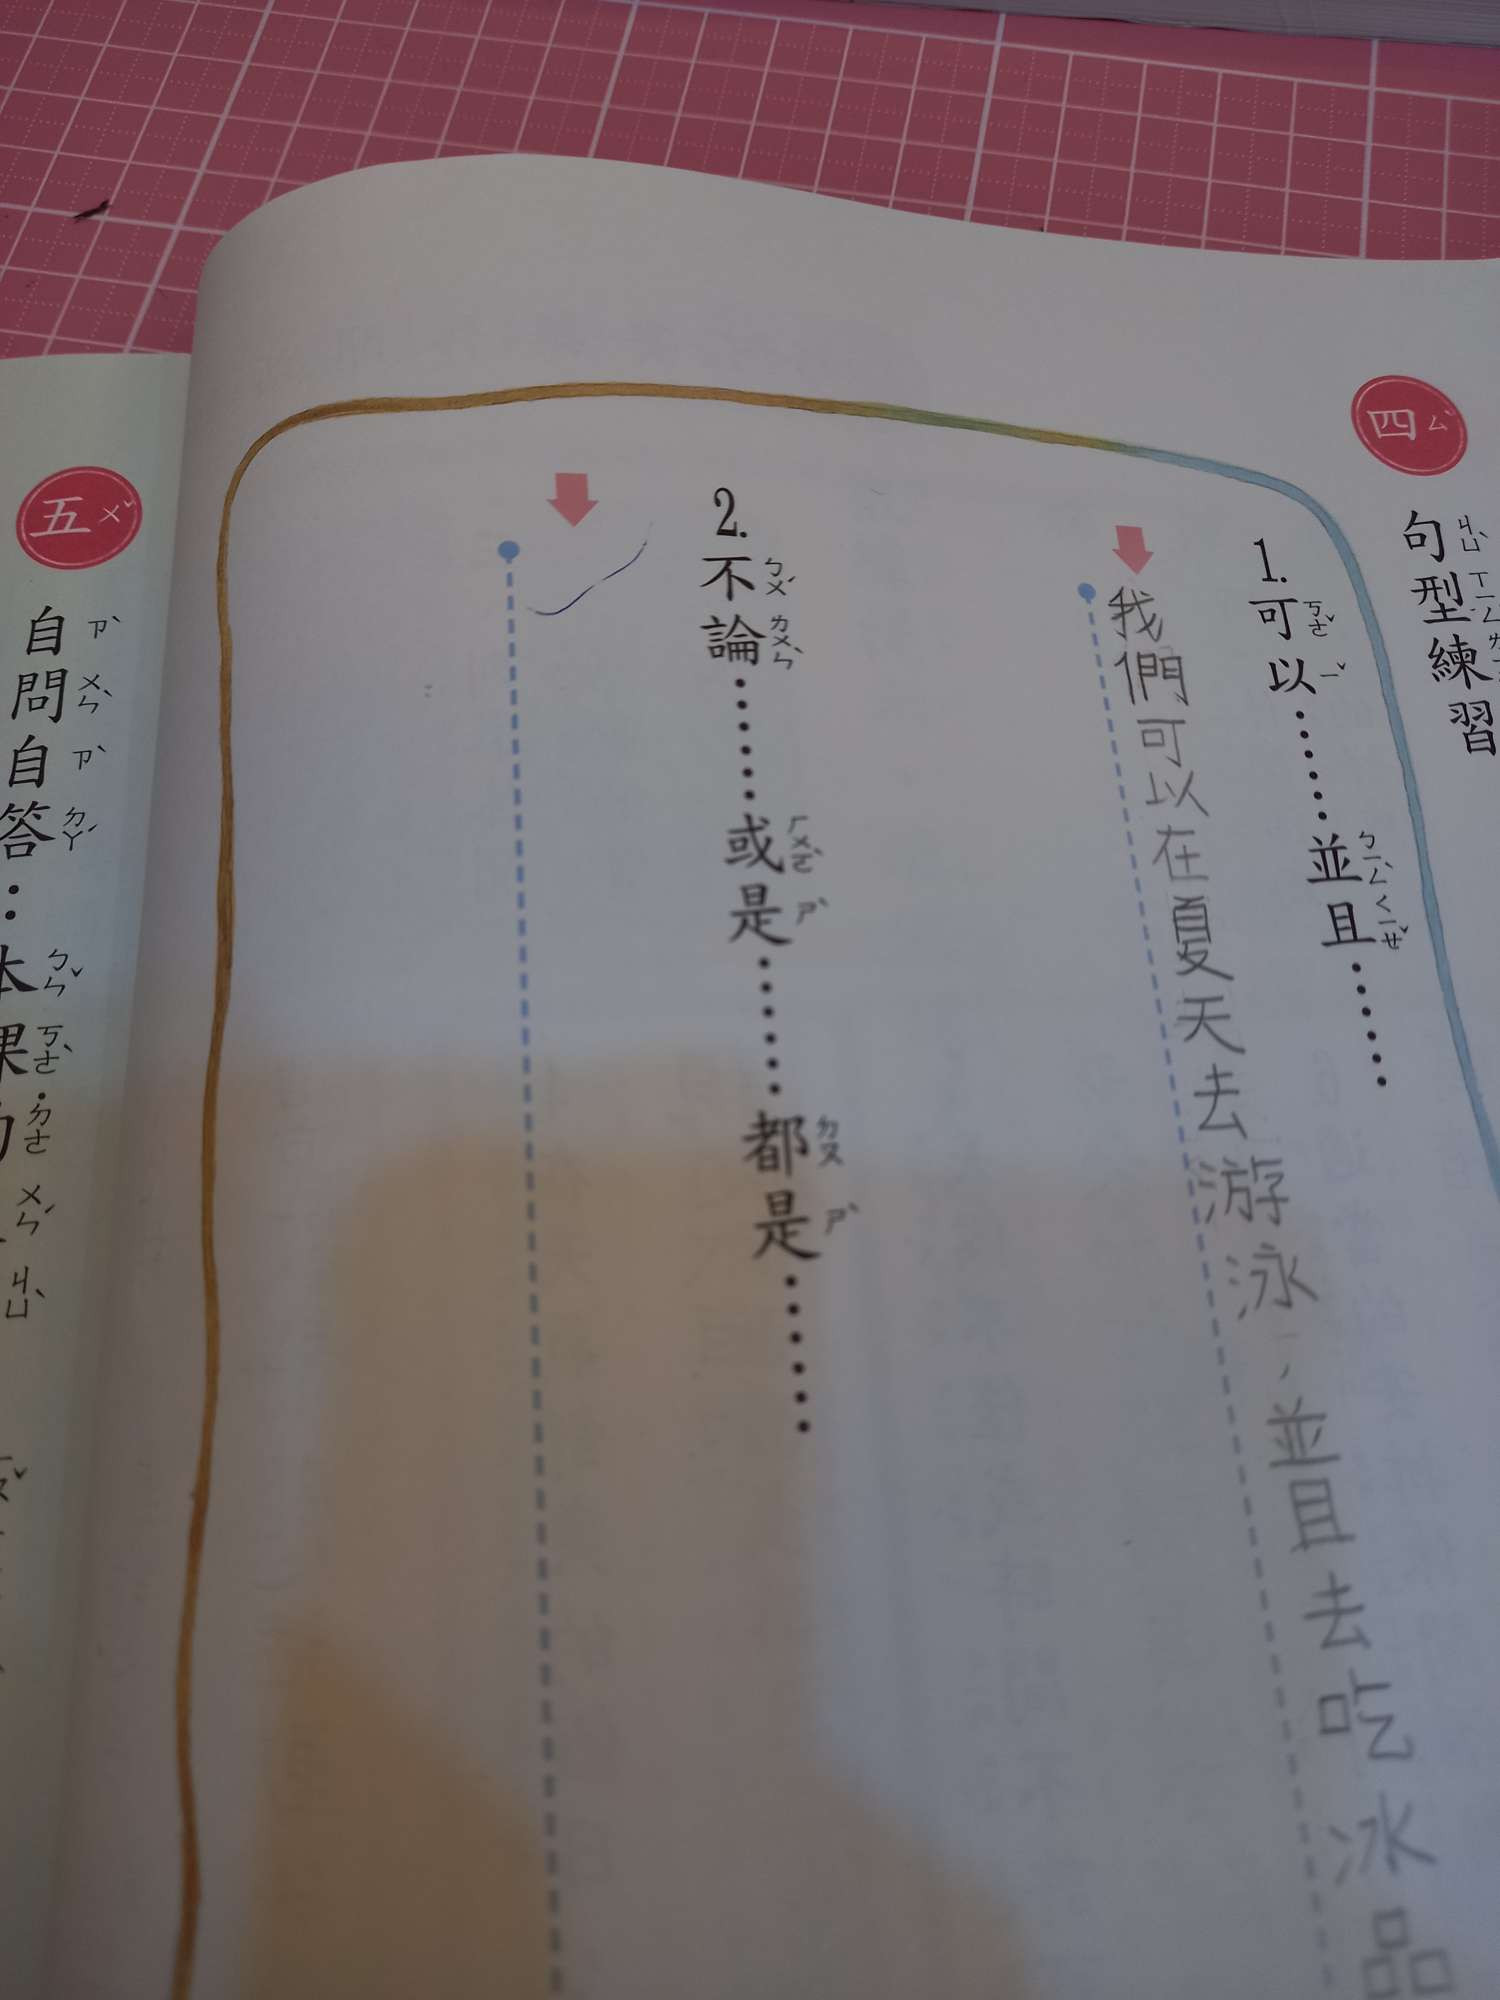 四ㄙˋ
句ㄐㄩˋ型ㄒㄧㄥˊ練習
1.可ㄎㄜˇ以ㄧˇ……並ㄅㄧㄥˋ且ㄑㄧㄝˇ……
我們可以在夏天去游泳,並且去吃冰品
2.不ㄅㄨˊ論ㄌㄨㄣˋ……或ㄏㄨㄛˋ是ㄕˋ……都ㄉㄡ是ㄕˋ……
五ㄨˇ
自ㄗˋ問ㄨㄣˋ自ㄗˋ答ㄉㄚˊ:本ㄅㄣˇ課ㄎㄜˋ的˙ㄉㄜ